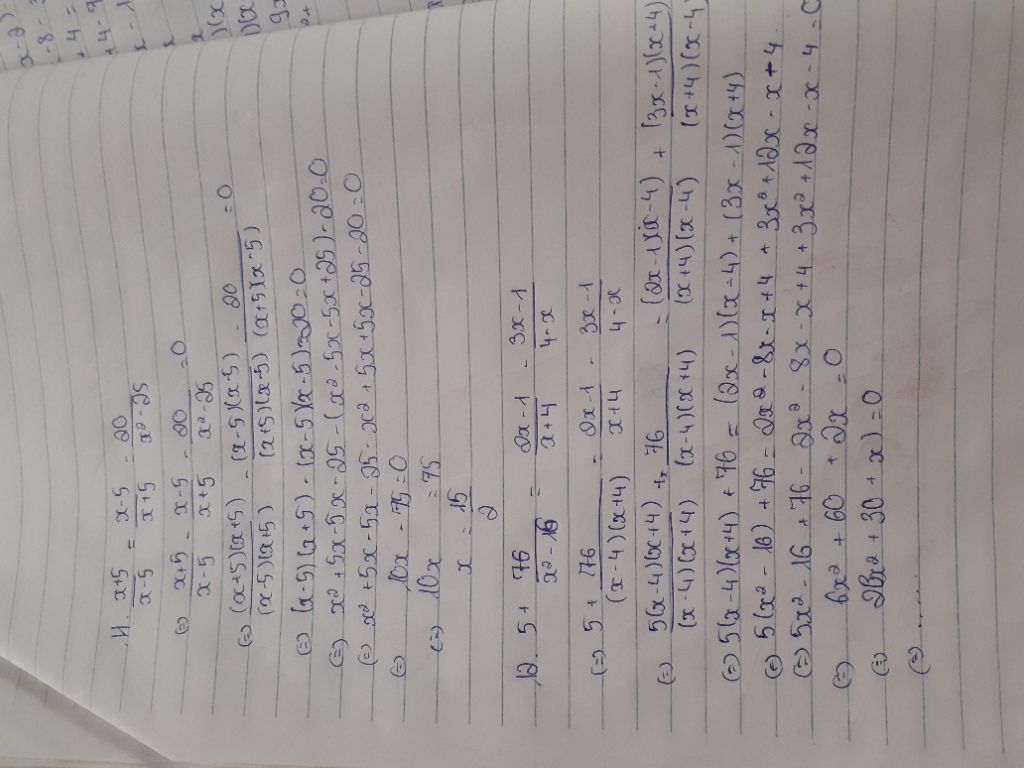 11. x+5/x-5 = x-5/x+5 - 20/x²-25
(=) x+5/x-5 - x-5/x+5 - 20/x²-25 =0
(=) (x+5)(x+5)/(x-5)(x+5) - (x-5)(x-5)/(x+5)(x-5) - 20/(x+5)(x-5) =0
(=) (x-5)(x+5) - (x-5)(x-5)-20=0
(=) x²+5x-5x-25-(x²-5x-5x+25)-20=0
(=) x²+5x-5x-25-x²+5x+5x-25-20=0
(=) 10x - 75=0
(=) 10x =75
x = 15/2
12. 5+ 76/x²-16 = 2x-1/x+4 - 3x-1/4-x
(=) 5+ 76/(x-4)(x+4) = 2x-1/x+4 - 3x-1/4-x
(=) 5(x-4)(x+4)/(x-4)(x+4) + 76/(x-4)(x+4) = (2x-1)(x-4)/(x+4)(x-4) + (3x-1)(x+4)/(x+4)(x-4)
(=) 5(x-4)(x+4)+76 = (2x-1)(x-4)+(3x-1)(x+4)
(=) 5(x²-16)+76= 2x²-8x-x+4+3x²+12x-x+4
(=) 5x²-16+76-2x²-8x-x+4+3x²+12x-x-4=0
(=) 6x²+60+2x=0
(=) 2(3x²+30+x)=0
(=) ......